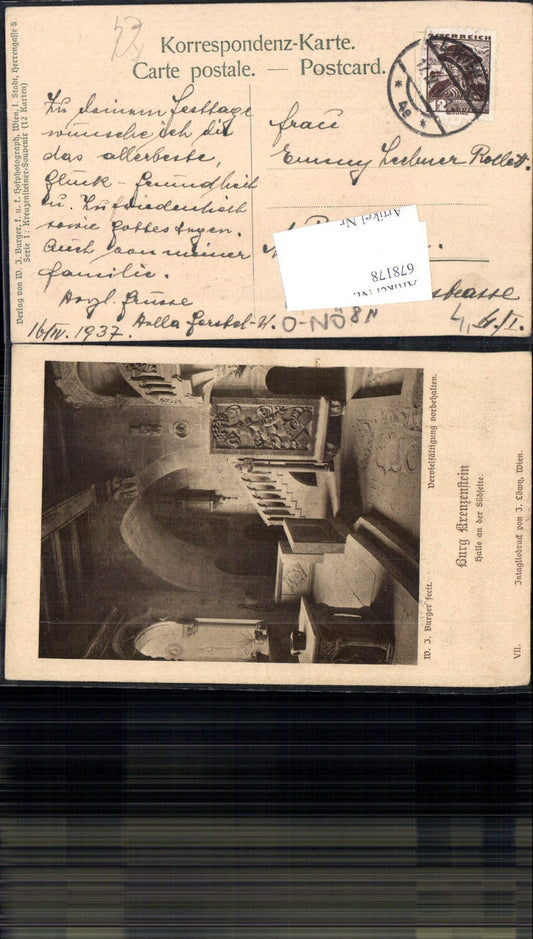 Korrespondenz-Karte.
Carte postale. — Postcard.
Verlag von W. J. Burger, k. u. k. Hofphotograph, Wien, I. Stadt, Herrengasse 6
Serie 1: Kreuzensteiner-Souvenir (12 Karten)
Zu deinem Festtage
wünsche ich dir
das allerbeste,
Glück - Gesundheit
u. Zufriedenheit
sowie Gottes Segen.
Auch von meiner
Familie.
Herzl. Grüsse
16/IV. 1937.
Frau
Emmy Lechner Rollett.
strasse
4,
O-NÖ8N
ÖSTERREICH
12
Artikel Nr
678178
Artikel Nr.
W. J. Burger fecit.
Vervielfältigung vorbehalten.
Burg Kreuzenstein
Halle an der Südseite.
VII.
Intagliodruck von J. Löwy, Wien.